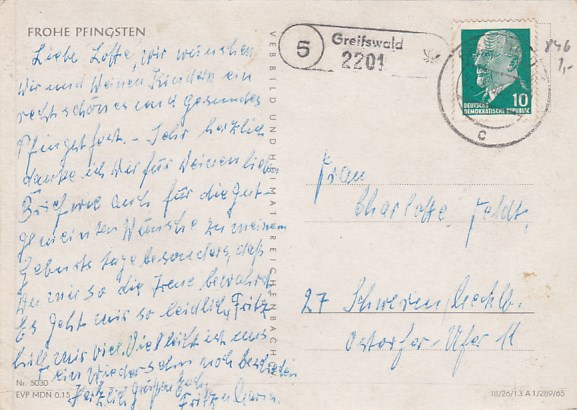 FROHE PFINGSTEN
Liebe Lotte, wir wünschen
Dir und Deinen Kindern ein
recht schönes und gesundes
Pfingstfest. - Sehr herzlich
danke ich Dir für Deinen lieb.
Brief wie auch für die gut
gemeinten Wünsche zu meinem
Geburtstage besonders, daß
Du mir so die Treue bewahrst.
Es geht mir so leidlich, Fritz
hilft mir viel. Vielleicht ist uns
ein Wiedersehn noch beschieden
Herzlich grüßen
Fritz
Nr. 5030
EVP MDN 0.15
VEB BILD UND HEIMAT REICHENBACH
5
Greifswald
2201
DEUTSCHE
DEMOKRATISCHE REPUBLIK
10
c
846
1,-
Frau
Charlotte Feldt,
27 Schwerin/Mecklb.
Ostorfer-Ufer 11
III/26/13 A 1/289/65